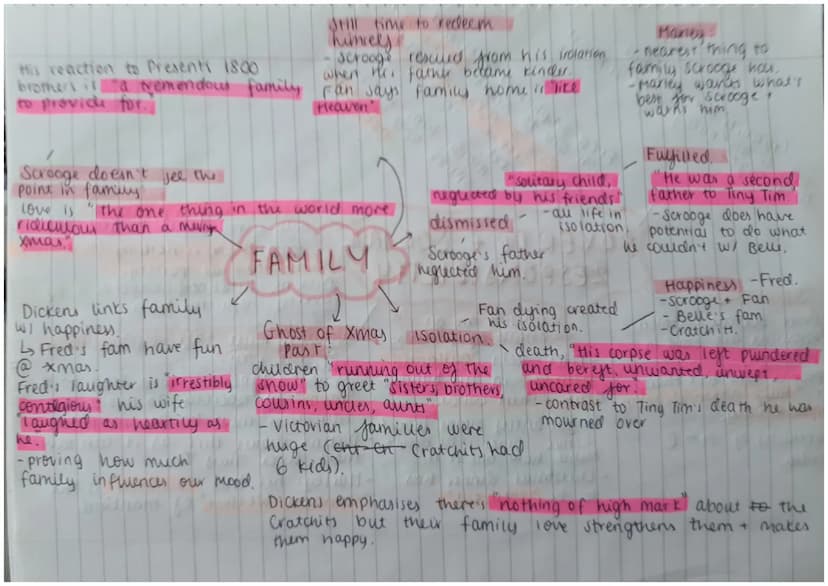 Still time to redeem
himself
- Scrooge rescued from his isolation
when his father became kinder.
Fan says family home is "like
Heaven"
Marley
- nearest thing to
family Scrooge has.
- Marley wants what's
best for Scrooge +
warns him.
His reaction to Presents 1800
brothers is "a tremendous family
to provide for."
Scrooge doesn't see the
point in family
love is "the one thing in the world more
ridiculous than a merry
xmas."
FAMILY
"solitary child,
neglected by his friends"
dismissed - - all life in
isolation.
Scrooge's father
neglected him.
Fulfilled
"He was a second
father to Tiny Tim"
- Scrooge does have
potential to do what
he couldn't w/ Belle.
Happiness - Fred.
- Scrooge + Fan
- Belle's fam
- Cratchits.
Dickens links family
w/ happiness.
↳ Fred's fam have fun
@ xmas.
Fred's laughter is "irrestibly
contagious" his wife
"laughed as heartily as
he."
- proving how much
family influences our mood.
Ghost of Xmas
Past:
children "running out of the
snow" to greet "sisters, brothers,
cousins, uncles, aunts"
- Victorian families were
huge (Cratchits had
6 kids).
Isolation.
Fan dying created
his isolation.
death, "His corpse was left plundered
and bereft, unwanted, unwept,
uncared for."
- contrast to Tiny Tim's death he was
mourned over
Dickens emphasises there's "nothing of high mark" about the
Cratchits but their family love strengthens them + makes
them happy.